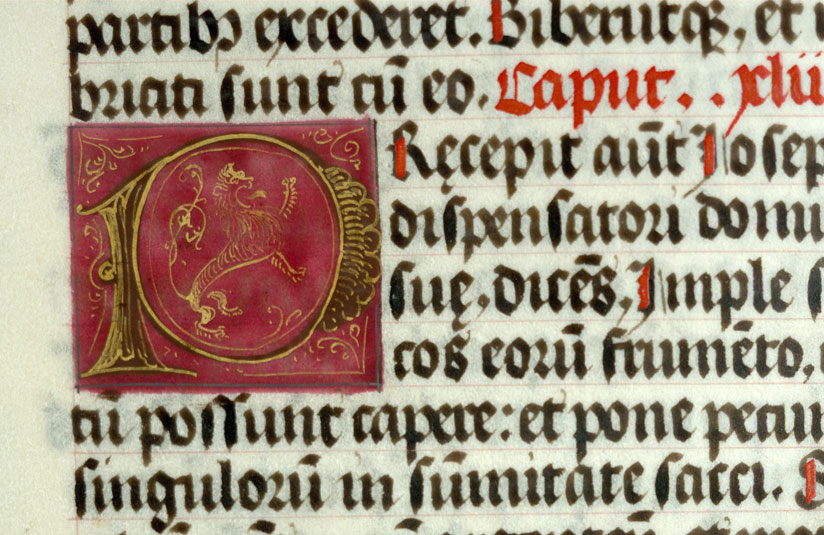 partibꝫ excederet. Biberūtqꝫ, et
briati sunt cū eo. Caput. .xlii
PRęcepit aūt Iosep
dispensatori domu
suę, dicēs, Imple s
cos eorū frumēto,
tū possunt capere: et pone pecun
singulorū in sūmitate sacci.